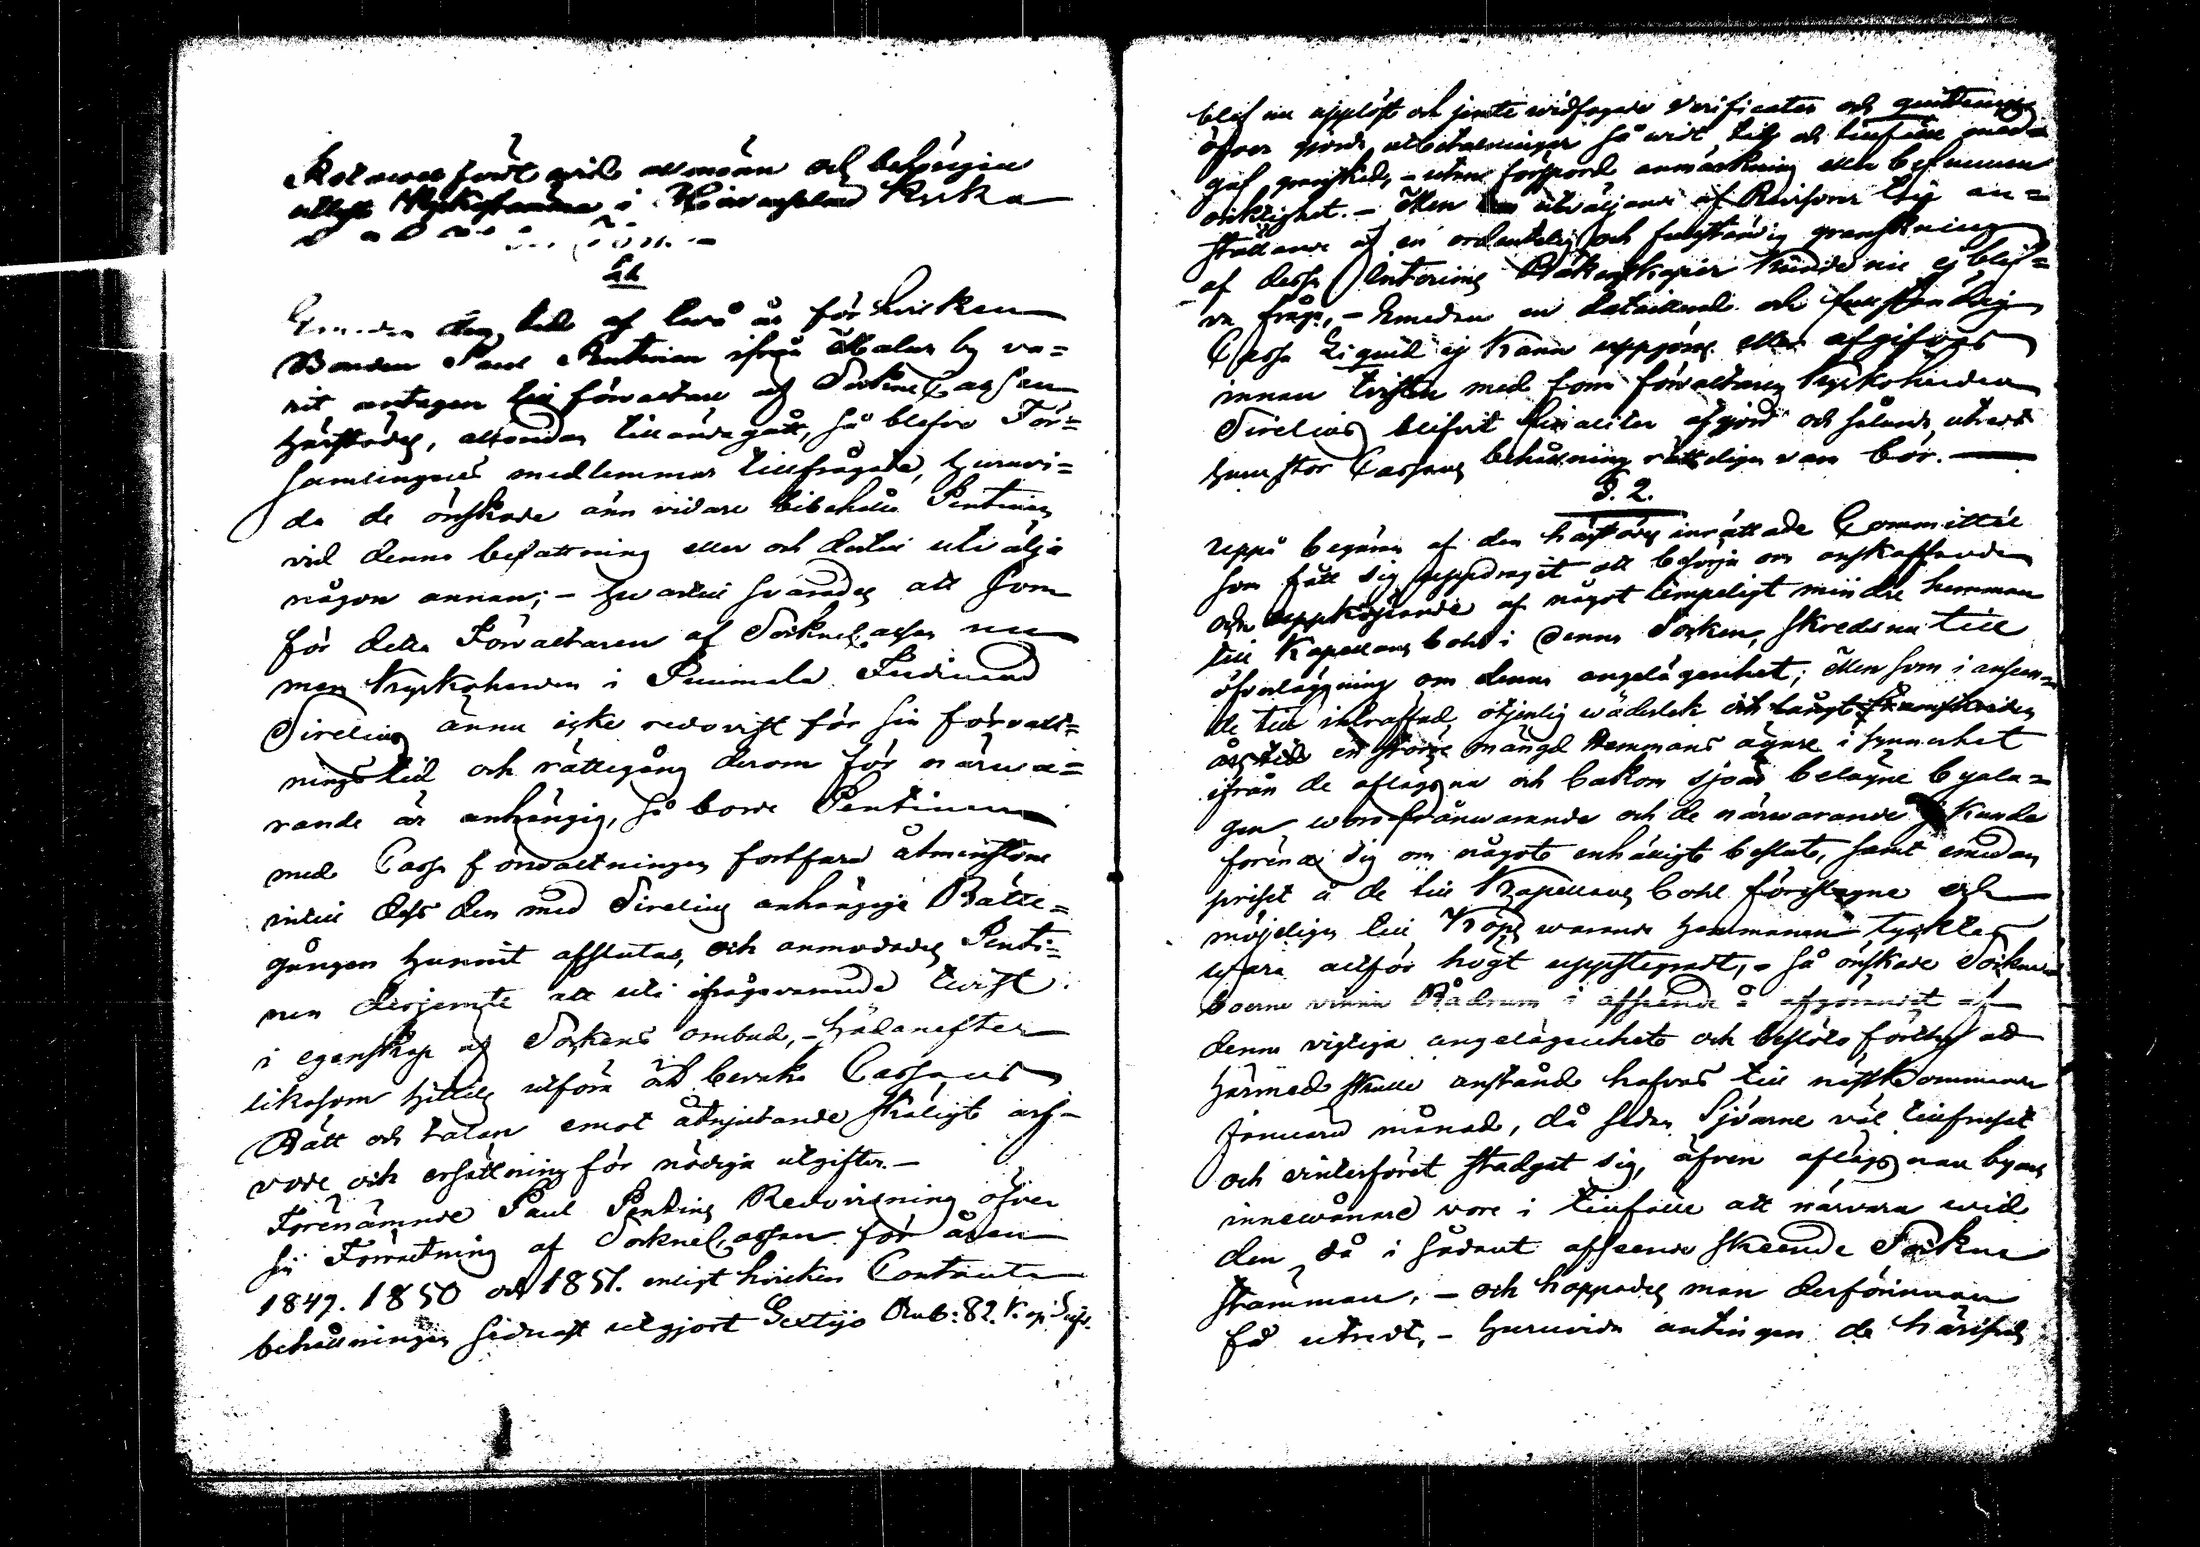 fördt wid allmänn och behörigen
utlyst Kyrkostämma i Kyrka
§ 1.
den tid af två år för hvilken
Bonden Paul Pentinen ifrån by va=
rit antagen till förvaltare af Sockne Cassan
härstädes, tilländagått, så blefvo För=
samlingens medlemmar tillfrågade, huruvi=
da de önskade änn vidare bibehålla Pentinen
vid denna befattning eller och dertill utvälja
någon annan; – hvartill svarades att som
för detta Förvaltaren af Sockne Cassan nu
mera Kyrkoherden i Sumiala Ferdinand
Sirelius ännu icke redovist för sin förvalt=
ningstid och rättegång derom för närva=
rande är anhängig, så borde Pentinen
med Cassa förvaltningen fortfara åtminstone
intill dess den med Sirelius anhängige Rätte=
gången hunnit afslutas, och anmodades Penti=
nen derjemte att uti ifrågavarande tvist
i egenskap af Sockens ombud, – hädanefter
likasom hittills utföra och bevaka Cassans
Rätt och talan emot åtnjutande skäligt arf=
vode och ersättning för nödiga utgifter. –
Förenämnde Paul Pentinens Redovisning öfver
sin Förvaltning af Sockne Cassan för åren
1849. 1850 och 1851. enligt hvilken Contanta
behållningen sednast utgjort Sextijo Rub: 82. Kop: Silfv.
blef nu uppläst och jemte widfogade Verificater och quittenser
öfver gjorda utbetalningar så widt tid och tillfälle med=
gaf granskad, – utan förspord anmärkning eller befunnen
oriktighet. – Men utväljande af Revisorer till an=
ställande af en ordentelig och fullständig granskning
af dessa Interims Räkenskaper kunde nu ej blif=
va fråga, – emedan en detaillerad och fullständig
Cassa Liquid ej kann uppgöras eller afgifvas
innan tvisten med förra förvaltaren Kyrkoherden
Sirelius blifvit finaliter afgjord och sålunda utredt
huru stor Cassans behållning rätteligen vara bör. –
§. 2.
Uppå begäran af den härstädes inrättade Committée
som fått sig uppdraget att besörja om anskaffande
och uppköpande af något lämpeligt mindre hemman
till Kapellans bohl i denna Socken, skreds nu till
öfverläggning om denna angelägenhet; Men som i anseen=
de till inträffad otjenlig wäderlek och långt framskriden
årstid en större mängd Hemmans ägare i synnerhet
ifrån de aflägsna och bakom sjöar belägne byala=
gen woro frånwarande och de närwarande ej kunde
förena sig om något enhälligt beslut, samt emedan
priset å de till Kapellans bohl föreslagne och
möjeligen till Köps warande hemmanen tycktes
wara alltför högt uppstegradt, – så önskade Sockne
boerne vinna Rådrum i afseende å afgörandet af
denna vigtiga angelägenhet och beslöto förthy att
härmed skulle anstånd hafvas till nästkommande
Januarii månad, då sedan Sjöarne väl tillfrusit
och vinterföret stadgat sig, äfven aflägsnare byars
innewånare vore i tillfälle att närvara wid
den då i sådant afseende skeende Sockne
stämman, – och hoppades man derförinnan
få utredt, – huruvida antingen de härifrån